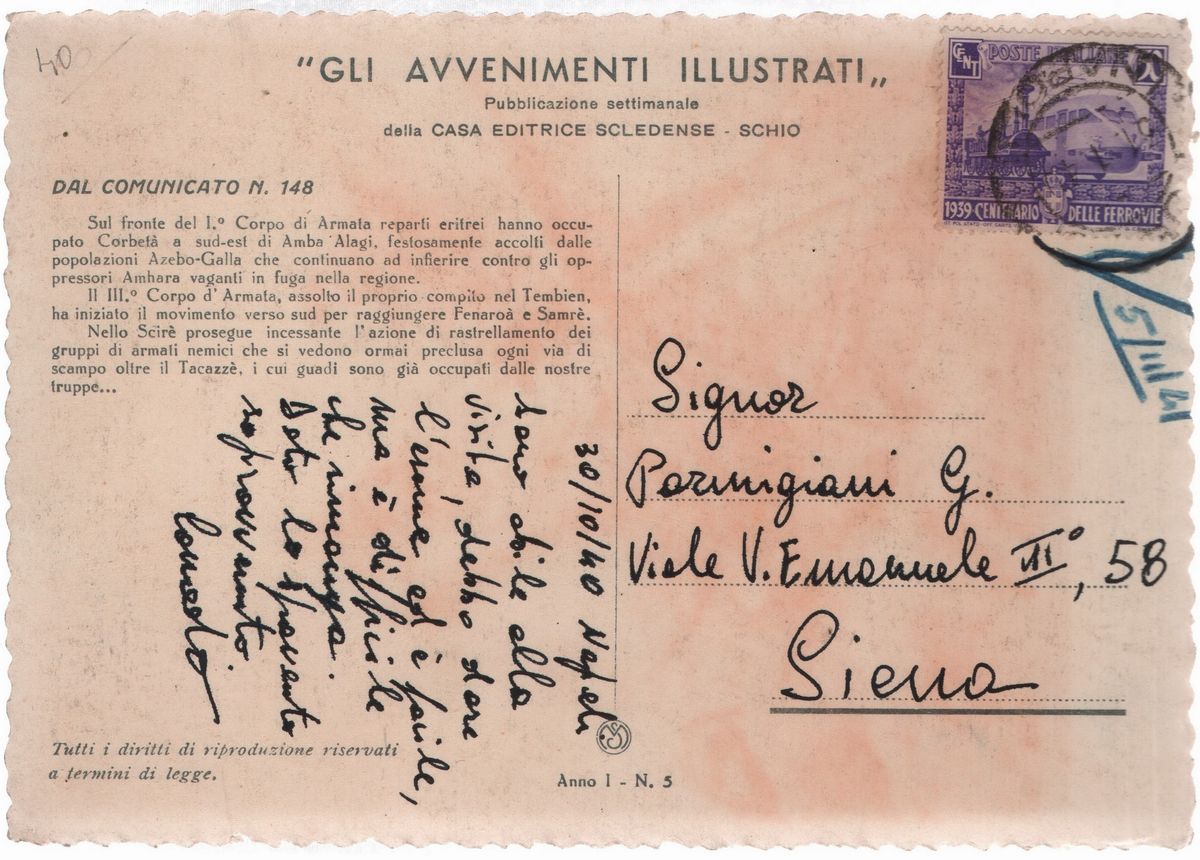 40
"GLI AVVENIMENTI ILLUSTRATI„
Pubblicazione settimanale
della CASA EDITRICE SCLEDENSE - SCHIO
DAL COMUNICATO N. 148
Sul fronte del I.º Corpo di Armata reparti eritrei hanno occu-
pato Corbetà a sud-est di Amba Alagi, festosamente accolti dalle
popolazioni Azebo-Galla che continuano ad infierire contro gli op-
pressori Amhara vaganti in fuga nella regione.
Il III.º Corpo d'Armata, assolto il proprio compito nel Tembien,
ha iniziato il movimento verso sud per raggiungere Fenaroà e Samrè.
Nello Scirè prosegue incessante l'azione di rastrellamento dei
gruppi di armati nemici che si vedono ormai preclusa ogni via di
scampo oltre il Tacazzè, i cui guadi sono già occupati dalle nostre
truppe...
30/10/40 Napoli
Sono abile alla
visita, debbo dare
l'esame ed è facile,
ma è difficile
che rimanga
Dato lo spavento
sopravvenuto
Tutti i diritti di riproduzione riservati
a termini di legge.
Anno I - N. 5
CENT POSTE ITALIANE 50
1939 - CENTENARIO DELLE FERROVIE
5/III 41
Signor
Parmigiani G.
Viale V. Emanuele IIIº, 58
Siena